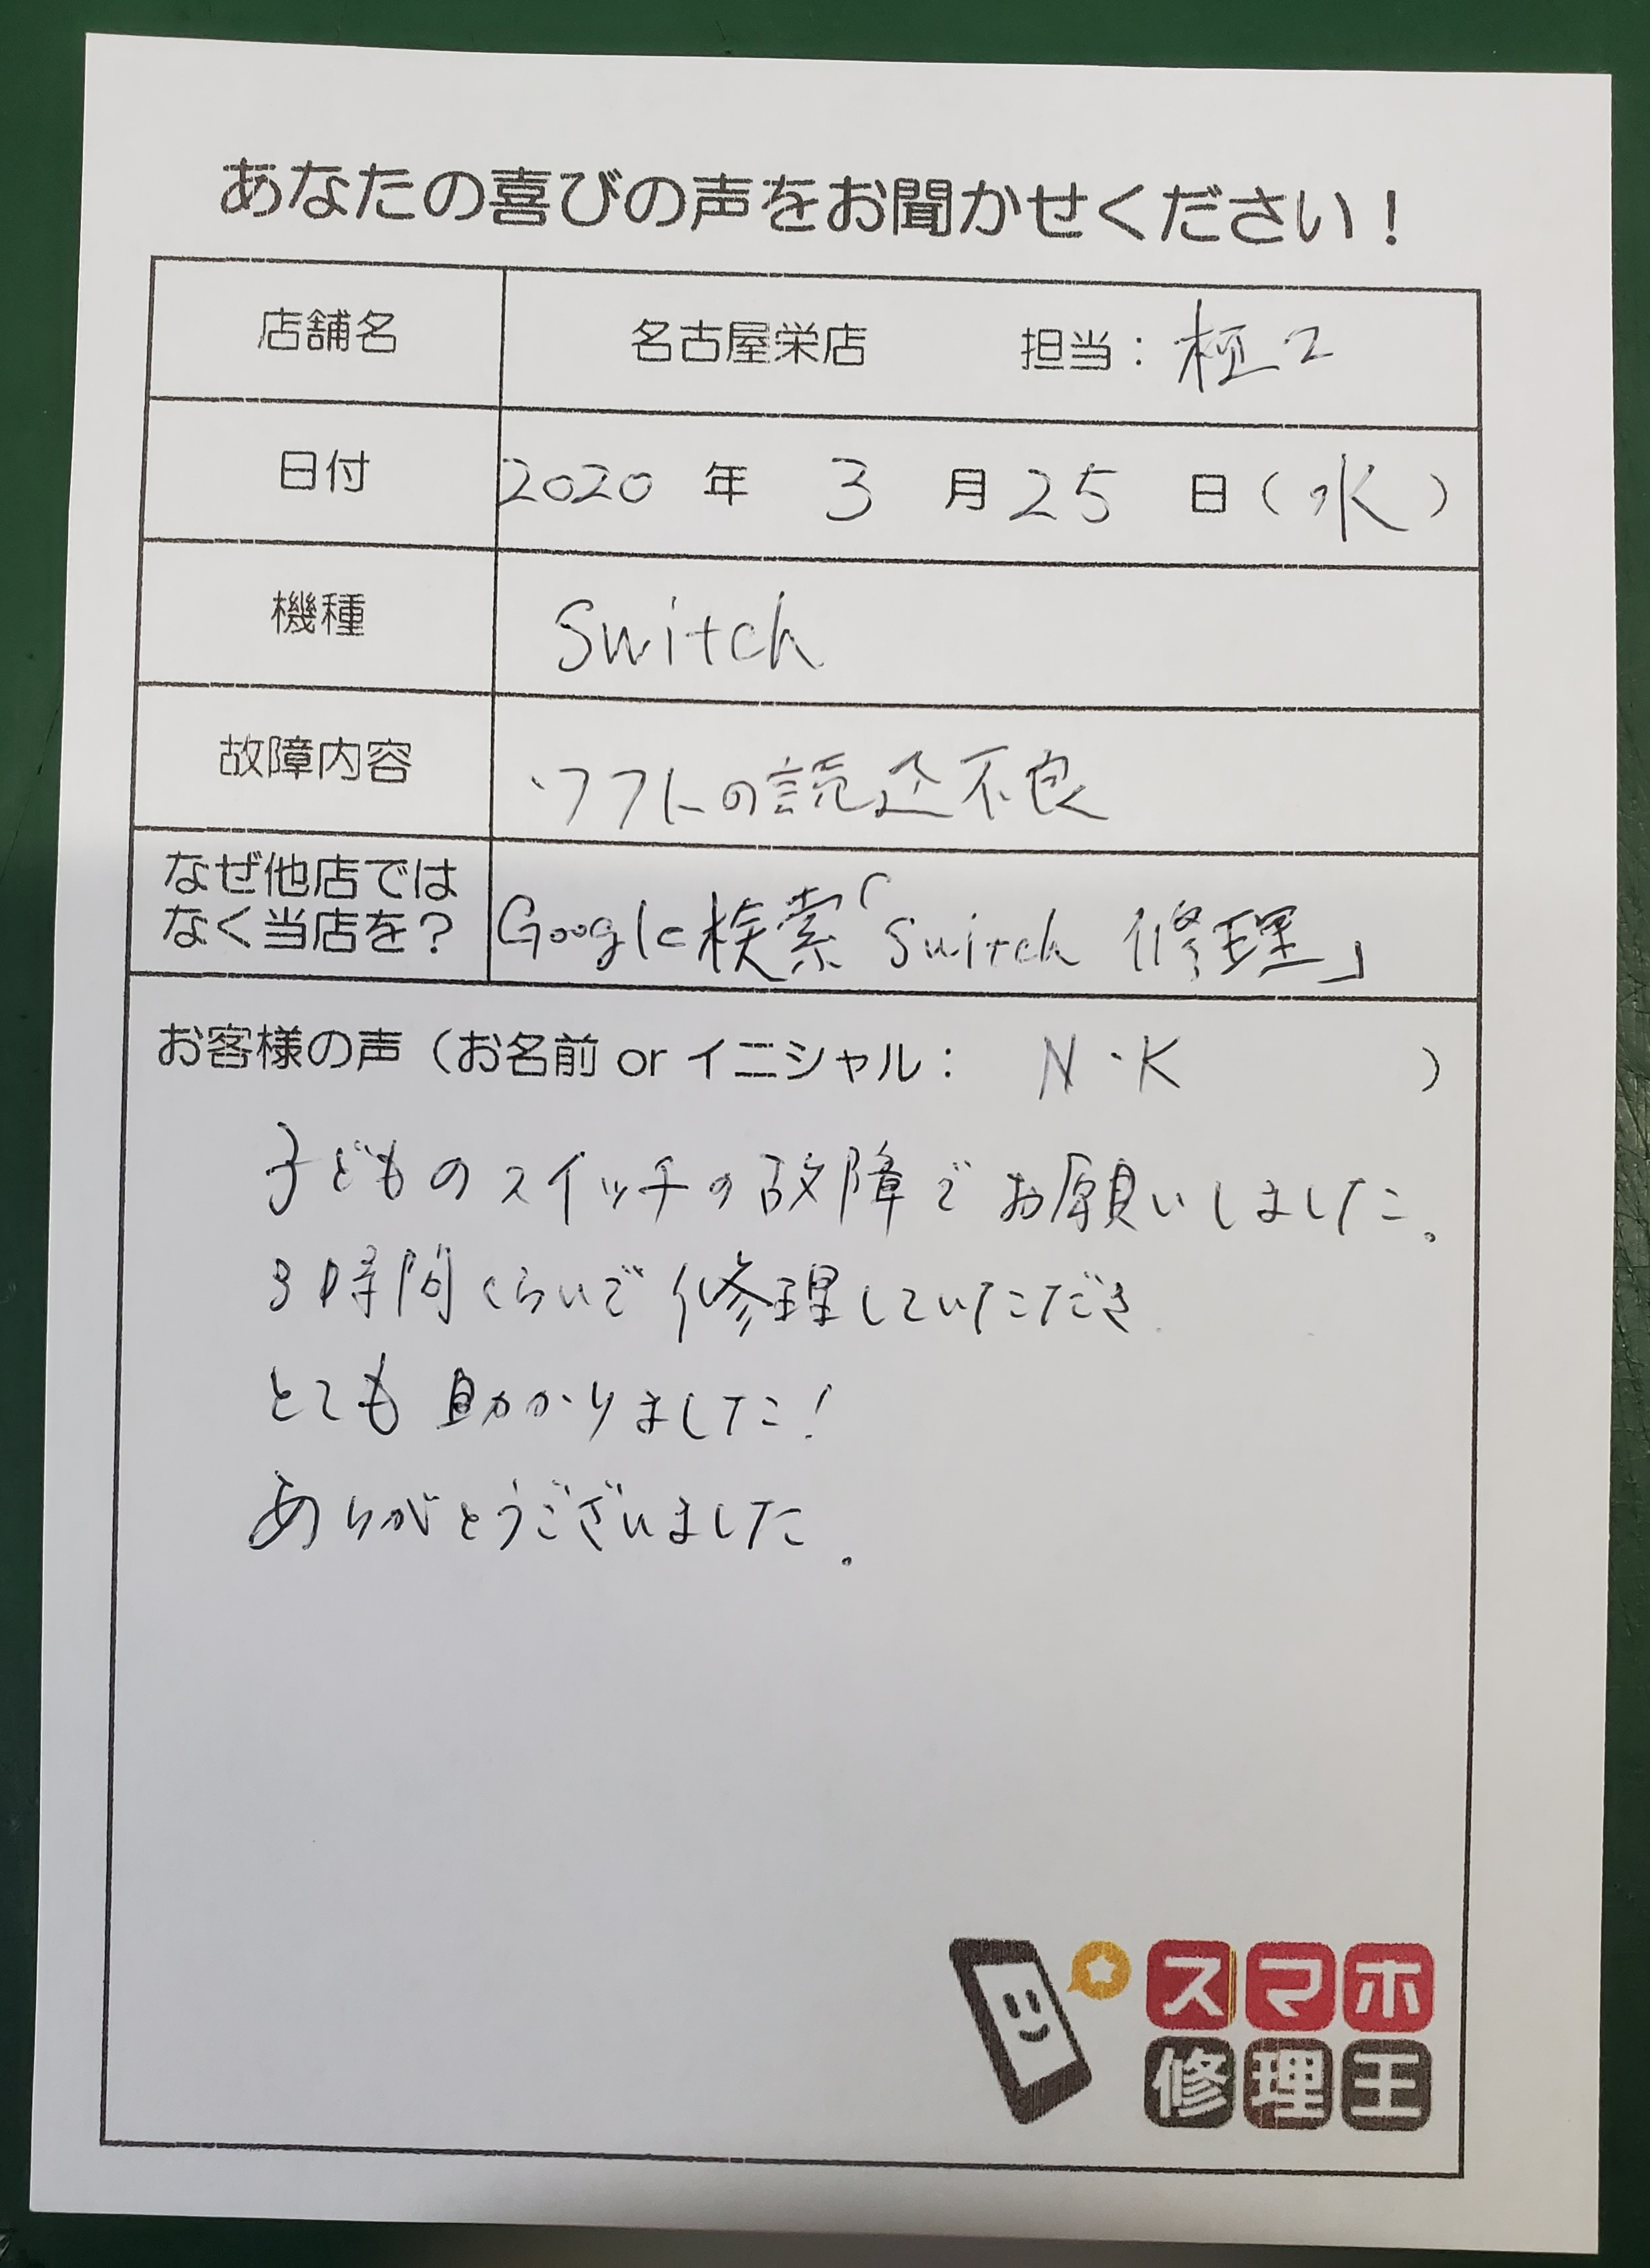 あなたの喜びの声をお聞かせください！
店舗名 名古屋栄店 担当：
日付 2020 年 3 月 25 日（水）
機種 Switch
故障内容 ソフトの読込不良
なぜ他店では
なく当店を？ Google検索「Switch 修理」
お客様の声（お名前 or イニシャル： N・K ）
子どものスイッチの故障でお願いしました。
3時間くらいで修理していただき
とても助かりました！
ありがとうございました。
スマホ
修理王